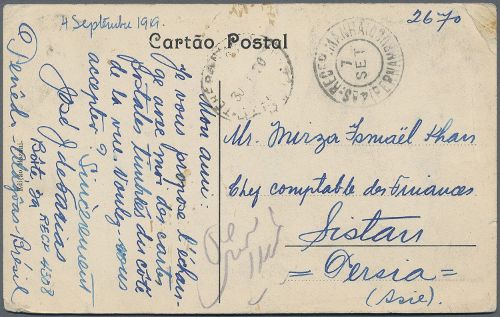 4 Septembre 1919.
Cartão Postal
2670
Mon ami:
Je vous propose l'échan-
ge avec moi des cartes
postales timbrées du côté
de la vue. Voulez-vous
accepter?
Sincèrement
José J. de Farias
Bôite, 39
RECIF 4308
Penêdo-Alagoas-Brésil
7
SET
Mr. Mirza Ismaël Khan
Chef comptable des Finances
Sistan
= Persia =
(Asie).